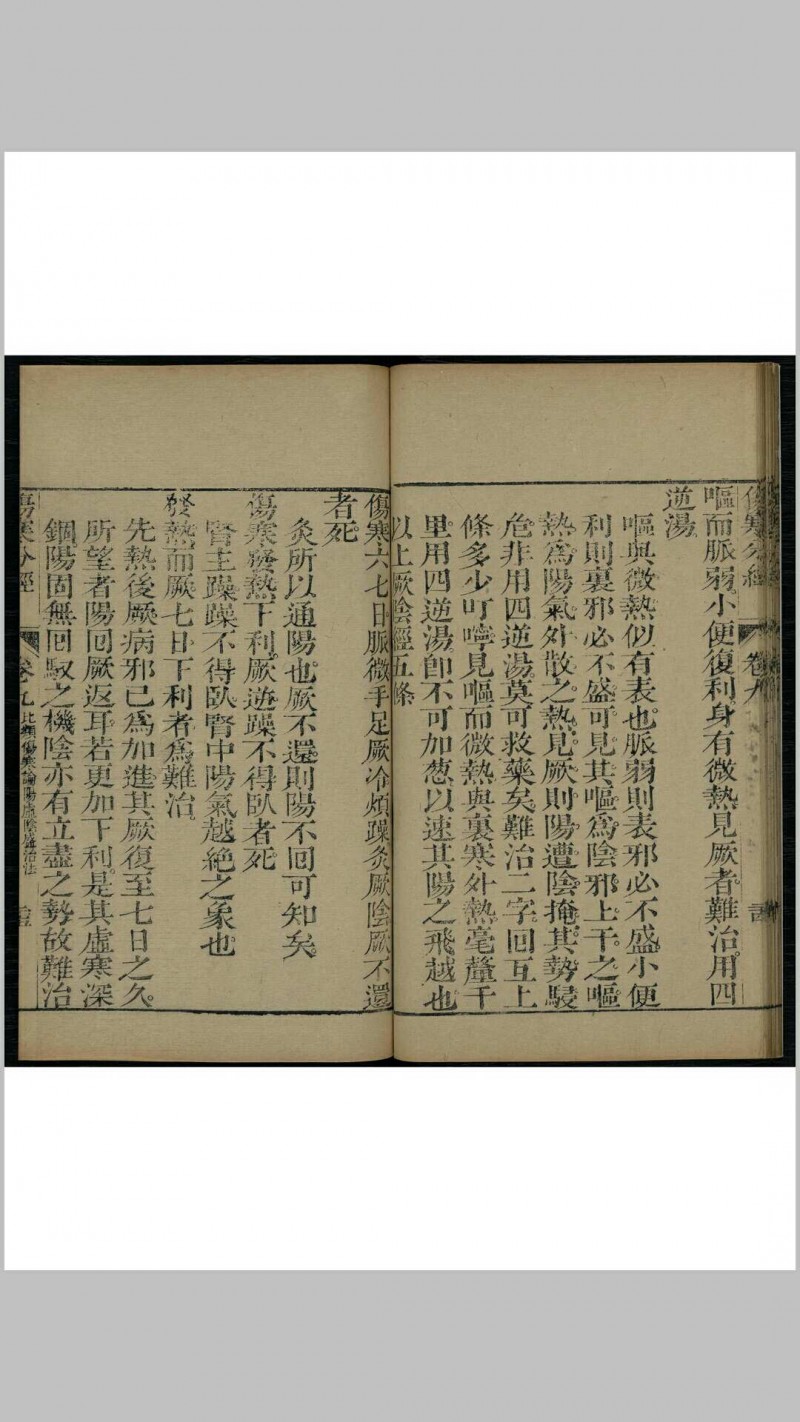 傷寒分經
卷九
嘔而脈弱。小便復利。身有微熱見厥者難治。用四
逆湯。
嘔與微熱似有表也。脈弱則表邪必不盛。小便
利則裏邪必不盛。可見其嘔爲陰邪上干之嘔。
熱爲陽氣外散之熱。見厥則陽遭陰掩。其勢駸
危。非用四逆湯。莫可救藥矣。難治二字。回互上
條多少叮嚀。見嘔而微熱與裏寒外熱。毫釐千
里。用四逆湯。卽不可加葱以速其陽之飛越也
以上厥陰經五條
傷寒六七日。脈微手足厥冷煩躁。灸厥陰。厥不還
者死。
灸所以通陽也。厥不還。則陽不回可知矣。
傷寒發熱。下利厥逆。躁不得臥者死。
腎主躁。躁不得臥。腎中陽氣越絶之象也
發熱而厥。七日下利者。爲難治。
先熱後厥。病邪已爲加進。其厥復至七日之久。
所望者陽回厥返耳。若更加下利。是其虛寒深
錮。陽固無回馭之機。陰亦有立盡之勢。故難治
傷寒分經
卷九 比類傷寒論陽虛陰盛治法